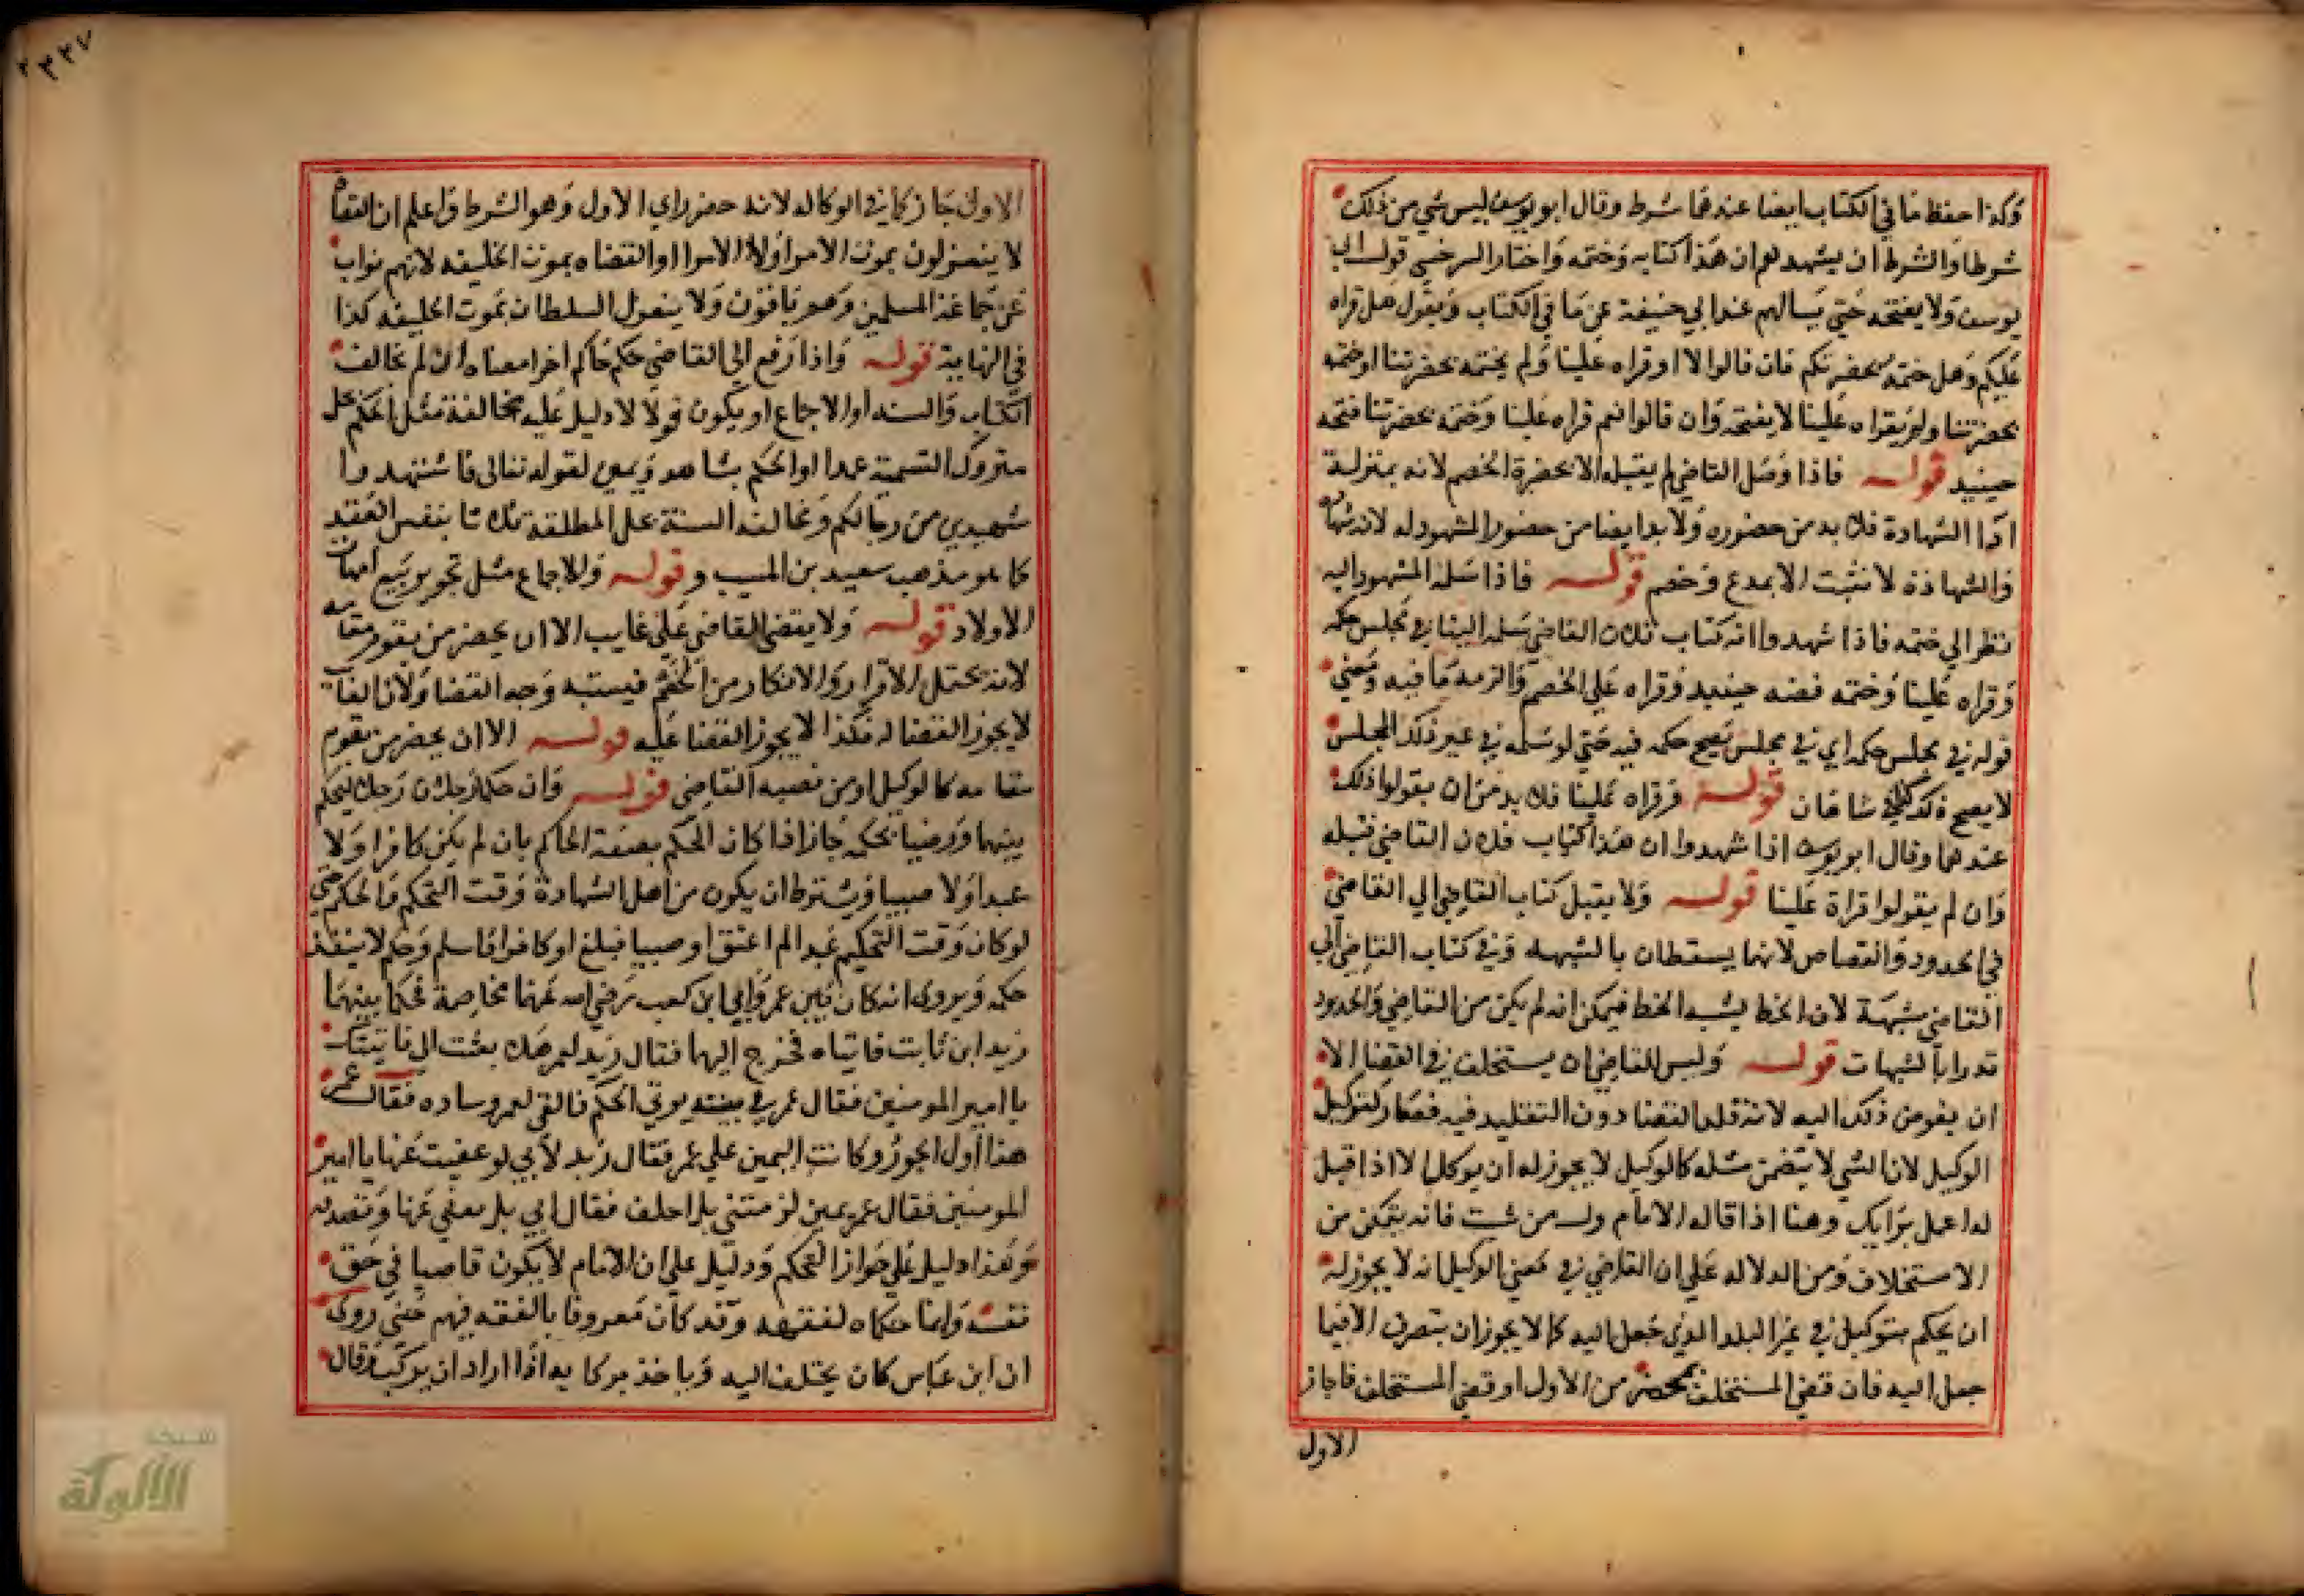 وكذا حفظ ما في الكتاب ايضا عندهما شرط وقال ابو يوسف ليس شي من ذلك
شرطا والشرط ان يشهدهم ان هذا كتابه وختمه واختار السرخسي قول ابي
يوسف ولا يفتحه حتي يسالهم عند ابي حنيفة عن ما في الكتاب ويقول هل قراه
عليكم وهل ختمه بحضرتكم فان قالوا لا او قراه علينا ولم يختمه بحضرتنا او ختمه
بحضرتنا ولم يقراه علينا لا يفتحه وان قالوا نعم قراه علينا وختمه بحضرتنا فتحه
حينيد قوله فاذا وصل القاضي لم يقبله الا بحضرة الخصم لانه بمنزلة
اداا الشهادة فلا بد من حضوره ولا بد ايضا من حضور المشهود له لانه شهاده
والشهادة لا تثبت الا بمدع وخصم قوله فاذا سلمه المشهود اليه
نظر الي ختمه فاذا شهدوا انه كتاب فلان القاضي سلمه الينا في مجلس حكمه
وقراه علينا وختمه فضه حينيد وقراه علي الخصم والزمه ما فيه ومعني
قوله في مجلس حكمه اي في مجلس يصح حكمه فيه حتي لو سلمه في غير ذلك المجلس
لا يصح ذكره شاهان قوله وقراه علينا فلا بد من ان يقولوا ذلك
عندهما وقال ابو يوسف اذا شهدوا ان هذا كتاب فلان القاضي قبله
وان لم يقولوا قراة علينا قوله ولا يقبل كتاب القاضي الي القاضي
في الحدود والقصاص لانهما يسقطان بالشبهه وفي كتاب القاضي الي
القاضي شبهة لان الخط يشبه الخط فيمكن انه لم يكن من القاضي والحدود
تدرا بالشبهات قوله وليس للقاضي ان يستخلف في القضا الا
ان يفوض ذلك اليه لانه قلد القضا دون التقليد فيه فصار كتوكيل
الوكيل لان الشي لا يتضمن مثله كالوكيل لا يجوز له ان يوكل الا اذا قيل
له اعمل برايك وهنا اذا قال له الامام ول من شيت فانه يتمكن من
الاستخلاف ومن الدلاله علي ان القاضي في معني الوكيل انه لا يجوز له
ان يحكم بتوكيل في غير البلد الذي جعل اليه كما لا يجوز ان يتصرف الا فيما
جعل اليه فان قضي المستخلف بمحضر من الاول او قضي المستخلف فاجاز
الاول
٣٢٧
الاول جاز كما في الوكاله لانه حضر راي الاول وهو الشرط واعلم ان القضاة
لا ينعزلون بموت الامرا ولا الامرا او القضاه بموت الخليفه لانهم نواب
عن جماعة المسلمين وهم باقون ولا ينعزل السلطان بموت الخليفه كذا
في النهاية قوله واذا رفع الي القاضي حكم حاكم اخر امضاه الا ان لم يخالف
الكتاب والسنه او الاجماع او يكون قولا لا دليل عليه مخالفة مثل الحكم بحل
متروك التسمية عمدا او الحكم بشاهد ويمين لقوله تعالى فاستشهدوا
شهيدين من رجالكم ومخالفه السنة حل المطلقة ثلاثا بنفس العقد
كما هو مذهب سعيد بن المسيب وقوله والاجماع مثل تجويز بيع امهات
الاولاد قوله ولا يقضي القاضي علي غايب الا ان يحضر من يقوم مقامه
لانه يحتمل الاقرار والانكار من الخصم فيشتبه وجه القضا ولان الغايب
لا يجوز القضا له فكذا لا يجوز القضا عليه قوله الا ان يحضر من يقوم
مقامه كالوكيل او من نصبه القاضي قوله وان حكم رجلان رجلا ليحكم
بينهما ورضيا بحكمه جاز اذا كان الحكم بصفة الحاكم بان لم يكن كافرا ولا
عبدا ولا صبيا ويشترط ان يكون من اهل الشهادة وقت التحكيم والحكم حتي
لو كان وقت التحكيم عبدا ثم اعتق او صبيا فبلغ او كافرا فاسلم وحكم لا ينفذ
حكمه ويروى انه كان بين عمر وابي ابن كعب رضي الله عنهما مخاصمة فحكما بينهما
زيد ابن ثابت فاتياه فخرج اليهما فقال زيد لعمر هلا بعثت الي فاتيتك
يا امير المومنين فقال عمر في بيته يوتي الحكم فالقي لعمر وساده فقال عمر
هذا اول الجور وكانت اليمين علي عمر فقال زيد لابي لو عفيت عنها يا امير
المومنين فقال عمر يمين لزمتني بل احلف فقال ابي بل نعفي عنها ونصدقه
وهذا دليل علي جواز التحكيم ودليل علي ان الامام لا يكون قاضيا في حق
نفسه وانما حكماه لفقهه وقد كان معروفا بالفقه فيهم حتي روى
ان ابن عباس كان يختلف اليه وياخذ بركابه اذا اراد ان يركب وقال
شبكة
الألوكة